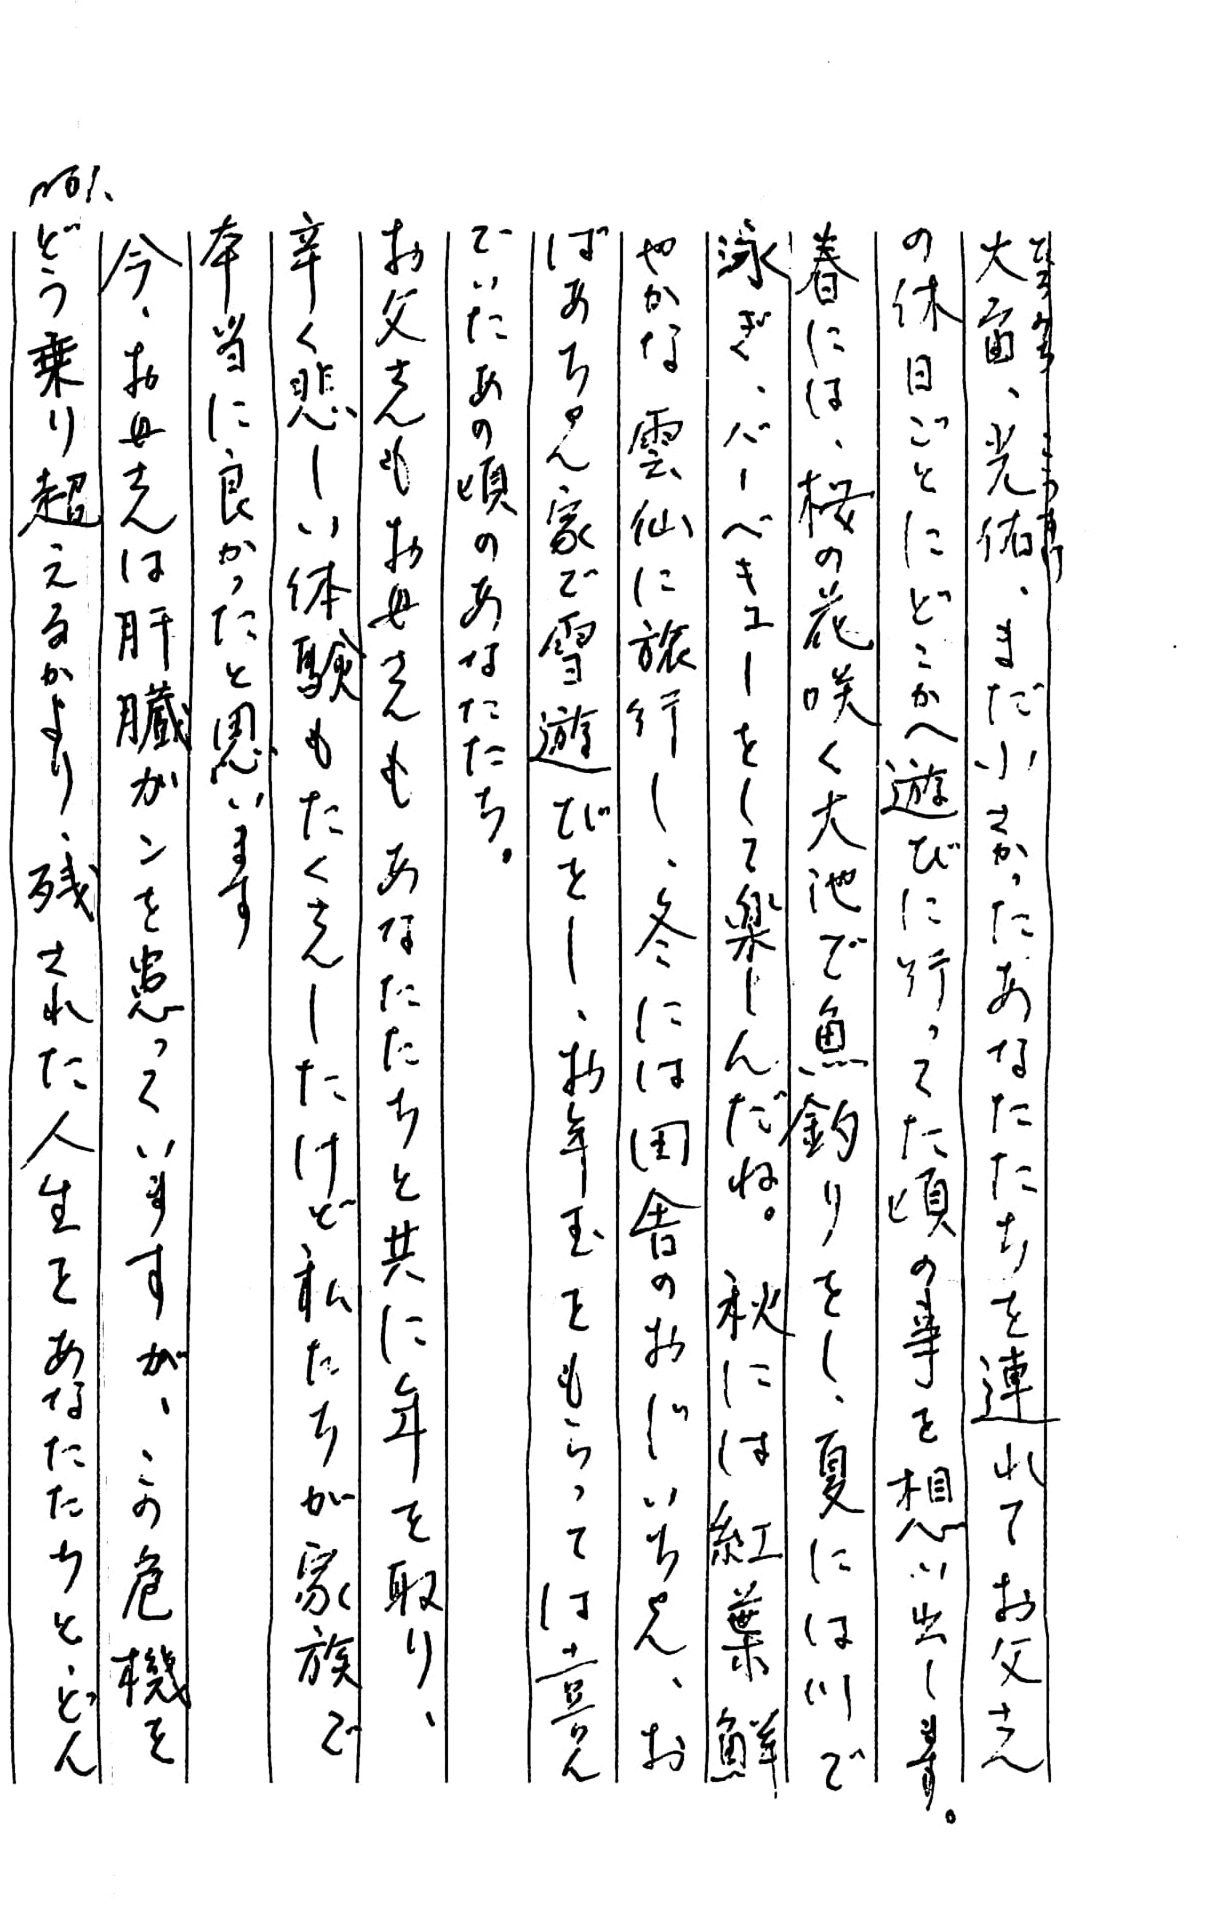 大宙、光佑、まだ小さかったあなたたちを連れてお父さん
の休日ごとにどこかへ遊びに行ってた頃の事を想い出します。
春には、桜の花咲く大池で魚釣りをし、夏には川で
泳ぎ、バーベキューをして楽しんだね。秋には紅葉鮮
やかな雲仙に旅行し、冬には田舎のおじいちゃん、お
ばあちゃん家で雪遊びをし、お年玉をもらっては喜ん
でいたあの頃のあなたたち。
お父さんもお母さんもあなたたちと共に年を取り、
辛く悲しい体験もたくさんしたけど私たちが家族で
本当に良かったと思います
今、お母さんは肝臓がンを患っていますが、この危機を
どう乗り超えるかより、残された人生をあなたたちと、どん
No1.